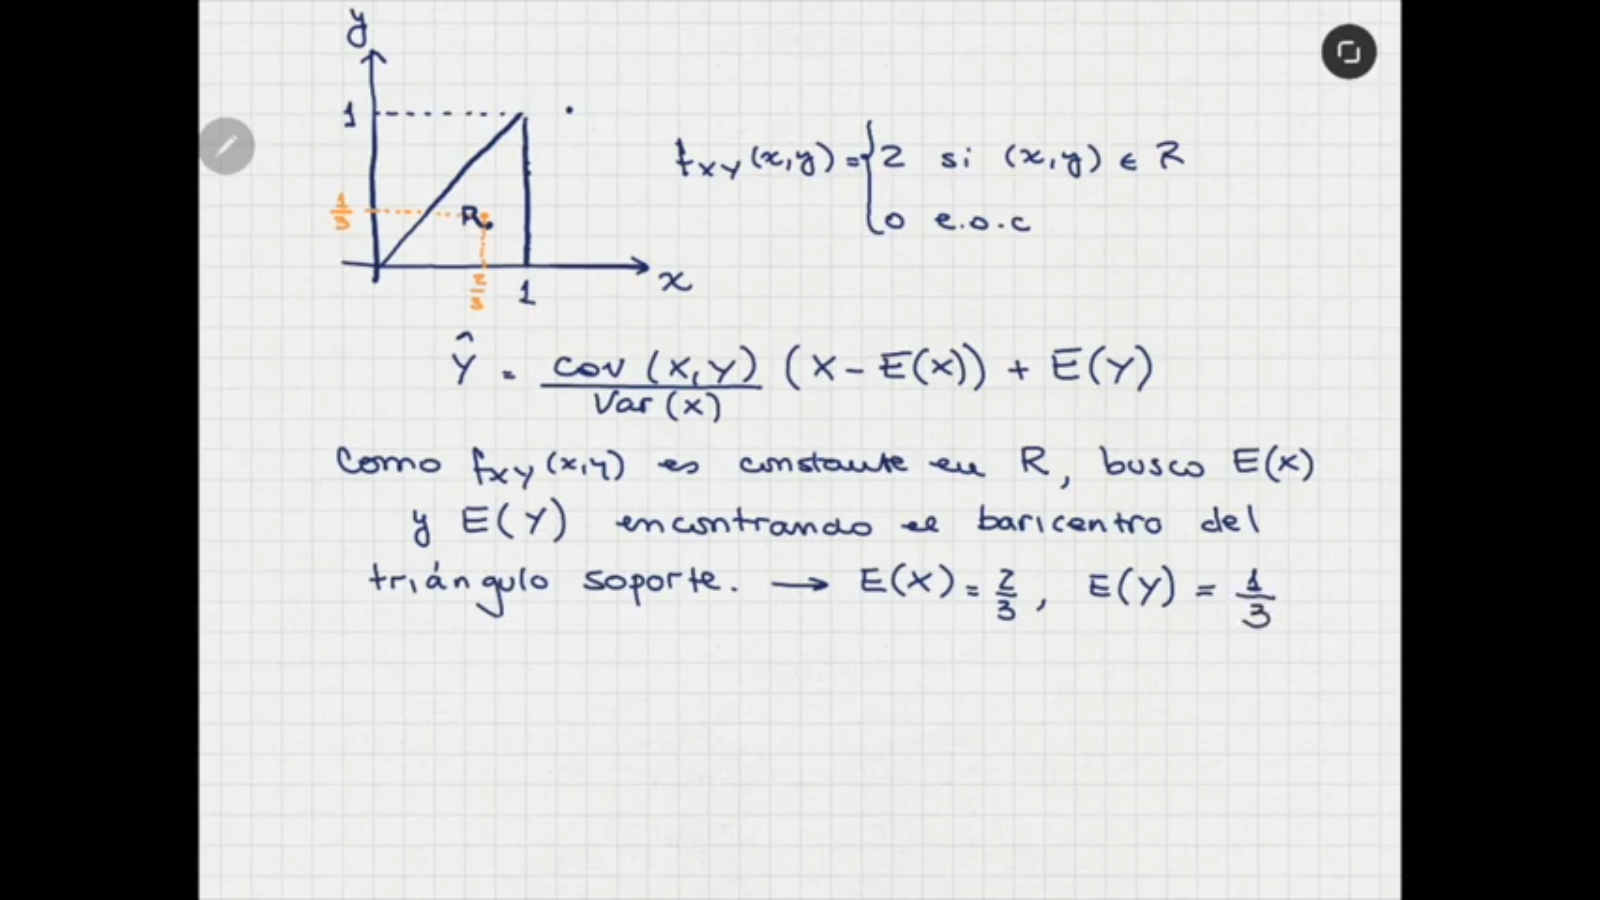 y
1
1/3
R
2/3
1
x
f_XY (x,y) = { 2 si (x,y) ∈ R
0 e.o.c
Ŷ = cov (X,Y) / Var (X) (X - E(X)) + E(Y)
Como f_XY (x,y) es constante en R, busco E(X)
y E(Y) encontrando el baricentro del
triángulo soporte. → E(X) = 2/3, E(Y) = 1/3